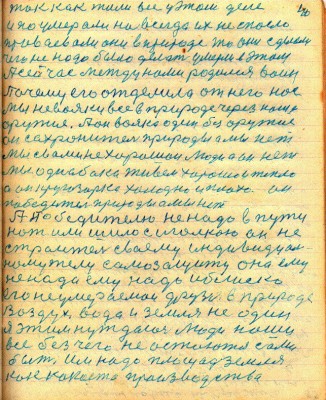 так как жили все в этом деле
и по умерали на всегда их не спасло
призвали они в природе то они сделали
чего не надо было делать умерли в этом
А сейчас между нами родился воин
Почему его отделила от него нас
мы не вояки все в природе через наше
оружие. А он вояка один без оружие
он сахронител природы а мы нет
мы с вами не хорошии люди а он нет
мы однабака живем хорошо и тепло
а он кругозарко холодно и плохо. он
победител природы а мы нет
А Победителю не надо в пути
нож или шило с иголкою он не
строител своему индивидуал-
ному телу самозащиту она ему
не нада ему надо
его неумераемои друзи в природе
воздух, вода и земля не один
я этим нуждаюс люди наши
все без чего не остаются сами
быт. Им надо площад земля
как какоето производства